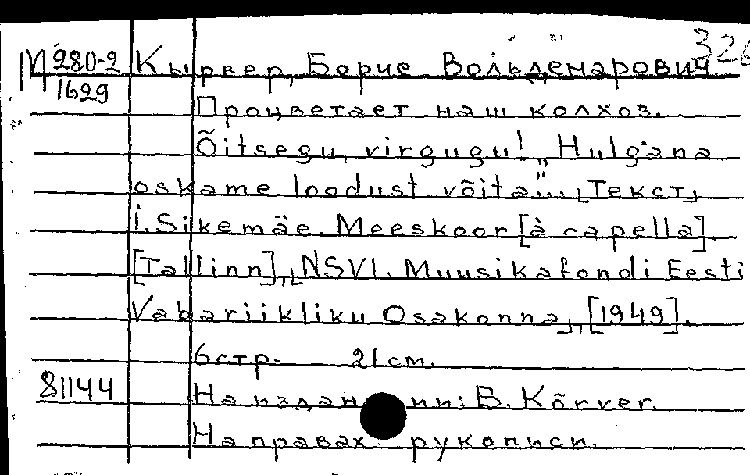 326
М 280-2 Кырвер, Борис Вольдемарович
1629
Процветает наш колхоз.
Õitsegu, virgugu! „Hulgana
oskame loodust võita..." [Текст]
I. Sikemäe. Meeskoor [à capella].
[Tallinn], [NSVL Muusikafondi Eesti
Vabariikliku Osakonna], [1949].
6 стр. 21 см.
81144 На издании: B. Kõrver.
На правах рукописи.